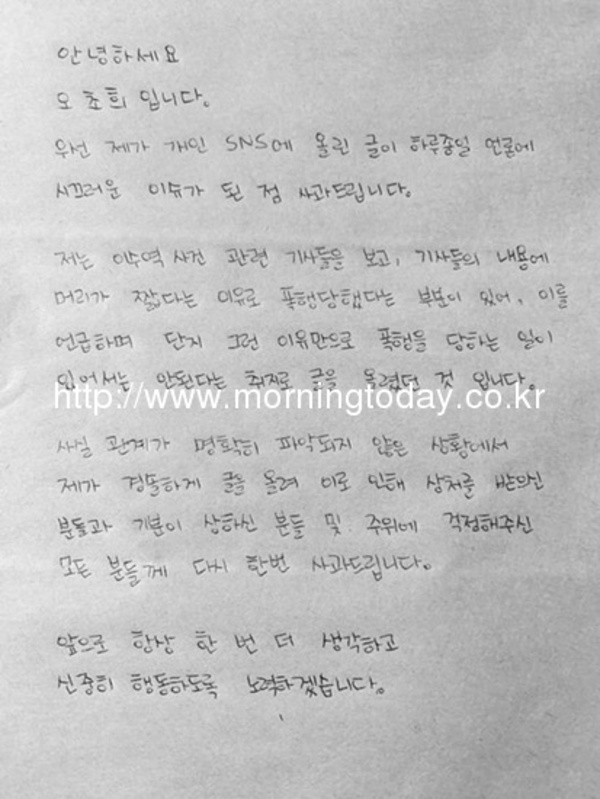 안녕하세요
오초희 입니다.
우선 제가 개인 SNS에 올린 글이 하루종일 언론에
시끄러운 이슈가 된 점 사과드립니다.
저는 이수역 사건 관련 기사들을 보고, 기사들의 내용에
머리가 짧다는 이유로 폭행당했다는 부분이 있어, 이를
언급하며 단지 그런 이유만으로 폭행을 당하는 일이
있어서는 안된다는 취지로 글을 올렸던 것 입니다.
http://www.morningtoday.co.kr
사실 관계가 명확히 파악되지 않은 상황에서
제가 경솔하게 글을 올려 이로 인해 상처를 받으신
분들과 기분이 상하신 분들 및 주위에 걱정해주신
모든 분들께 다시 한번 사과드립니다.
앞으로 항상 한 번 더 생각하고
신중히 행동하도록 노력하겠습니다.